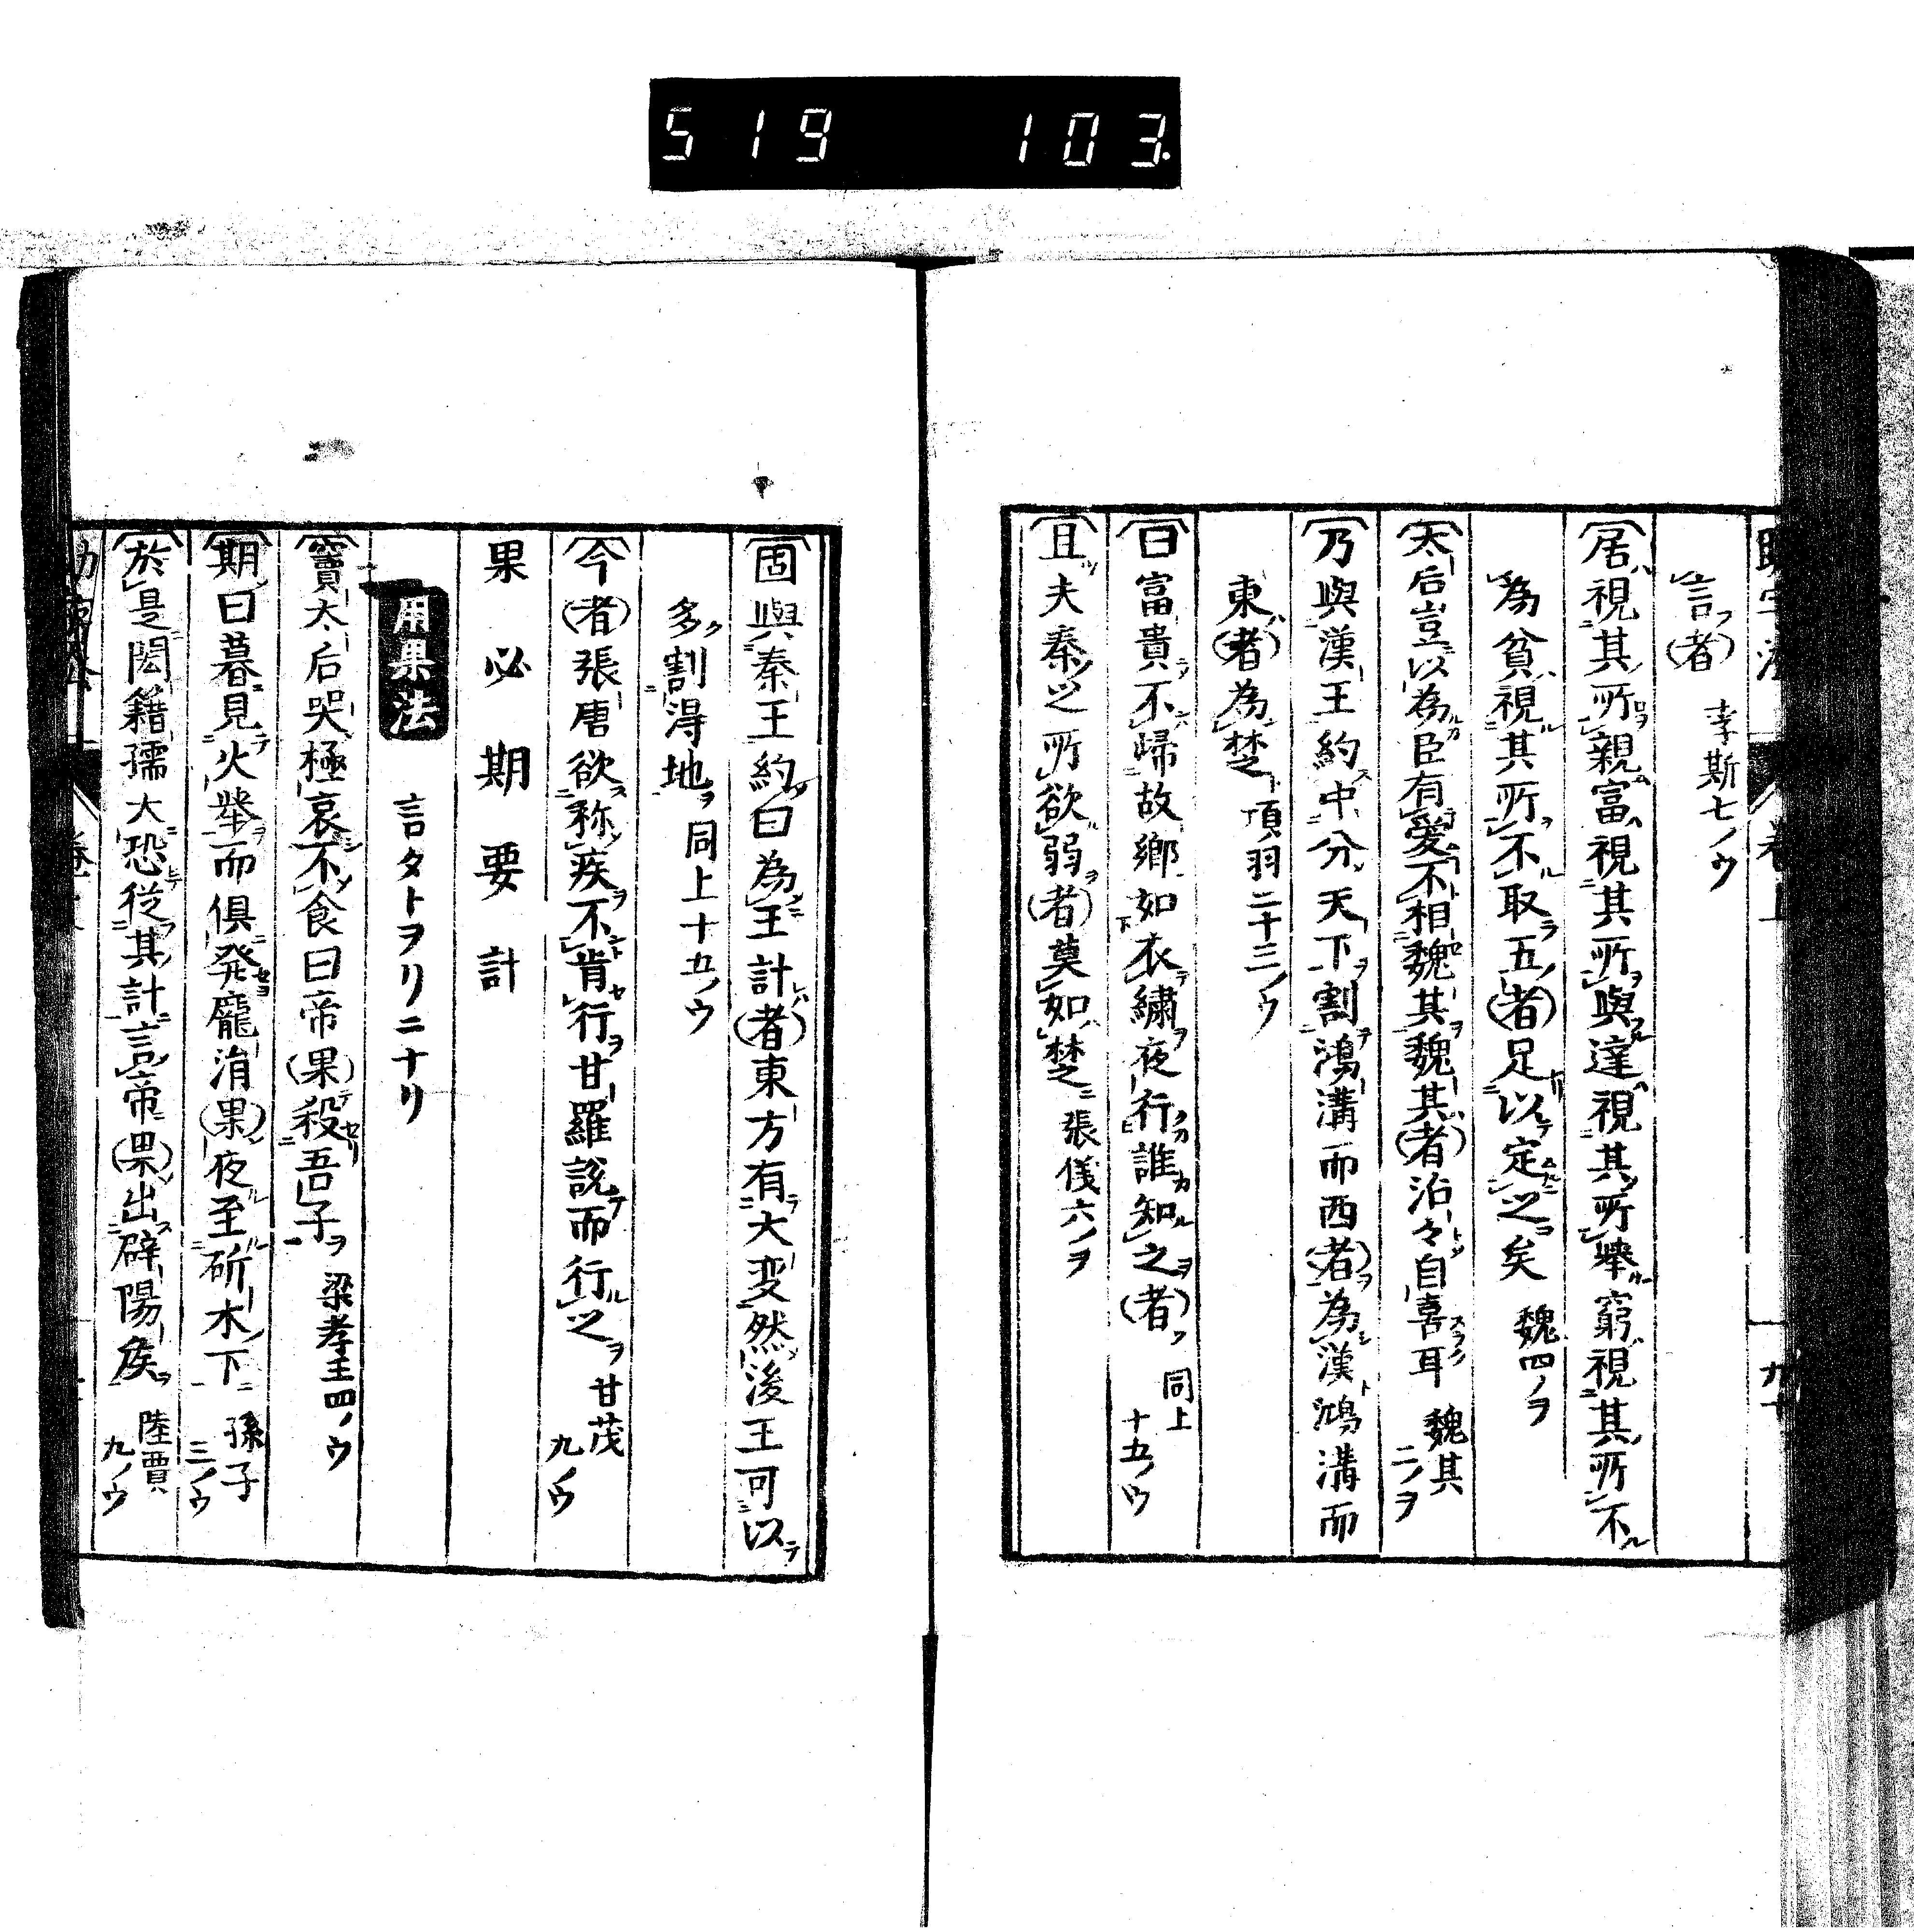 519 103
言フ(者) 李斯七ノウ
居視其所親富視其所與達視其所舉窮視其所不
為貧視其所不取五(者)足以定之矣 魏四ノヲ
太后豈以為臣有愛不相魏其魏其(者)沾々自喜耳 魏其二ノヲ
乃與漢王約中分天下割鴻溝而西(者)為漢鴻溝而
東(者)為楚 項羽二十三ノウ
曰富貴不歸故鄉如衣繡夜行誰知之(者) 同上十五ノウ
且夫秦之所欲弱(者)莫如楚 張儀六ノヲ
固與秦王約曰為王計(者)東方有大変然後王可以
多割得地 同上十五ノウ
今(者)張唐欲称疾不肯行甘羅説而行之 甘茂九ノウ
果必期要計
用果法 言タトヲリニナリ
竇太后哭極哀不食曰帝(果)殺吾子 梁孝王四ノウ
期曰暮見火挙而俱発龐涓(果)夜至斫木下 孫子三ノウ
於是閎籍孺大恐從其計言帝(果)出辟陽侯 陸賈九ノウ